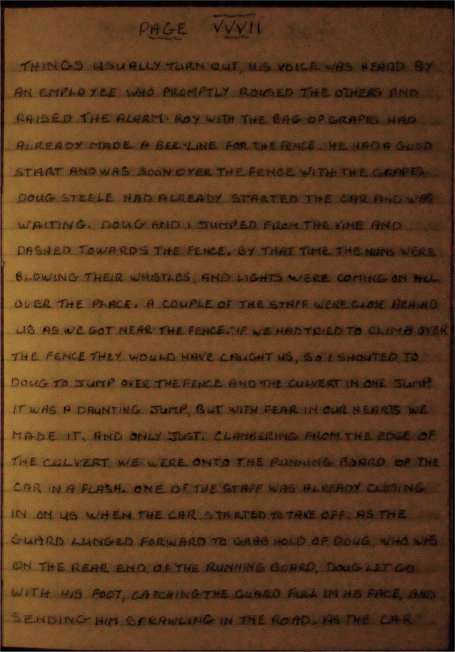 PAGE VVVII
THINGS USUALLY TURN OUT, HIS VOICE WAS HEARD BY
AN EMPLOYEE WHO PROMPTLY ROUSED THE OTHERS AND
RAISED THE ALARM. ROY WITH THE BAG OF GRAPES HAD
ALREADY MADE A BEE-LINE FOR THE FENCE. HE HAD A GOOD
START AND WAS SOON OVER THE FENCE WITH THE GRAPES.
DOUG STEELE HAD ALREADY STARTED THE CAR AND WAS
WAITING. DOUG AND I JUMPED FROM THE VINE AND
DASHED TOWARDS THE FENCE. BY THAT TIME THE NUNS WERE
BLOWING THEIR WHISTLES, AND LIGHTS WERE COMING ON ALL
OVER THE PLACE. A COUPLE OF THE STAFF WERE CLOSE BEHIND
US AS WE GOT NEAR THE FENCE. IF WE HAD TRIED TO CLIMB OVER
THE FENCE THEY WOULD HAVE CAUGHT US, SO I SHOUTED TO
DOUG TO JUMP OVER THE FENCE AND THE CULVERT IN ONE JUMP.
IT WAS A DAUNTING JUMP, BUT WITH FEAR IN OUR HEARTS WE
MADE IT, AND ONLY JUST. CLAMBERING FROM THE EDGE OF
THE CULVERT WE WERE ONTO THE RUNNING BOARD OF THE
CAR IN A FLASH. ONE OF THE STAFF WAS ALREADY CLOSING
IN ON US WHEN THE CAR STARTED TO TAKE OFF. AS THE
GUARD LUNGED FORWARD TO GRAB HOLD OF DOUG, WHO WAS
ON THE REAR END OF THE RUNNING BOARD, DOUG LET GO
WITH HIS FOOT, CATCHING THE GUARD FULL IN HIS FACE, AND
SENDING HIM SPRAWLING IN THE ROAD. AS THE CAR